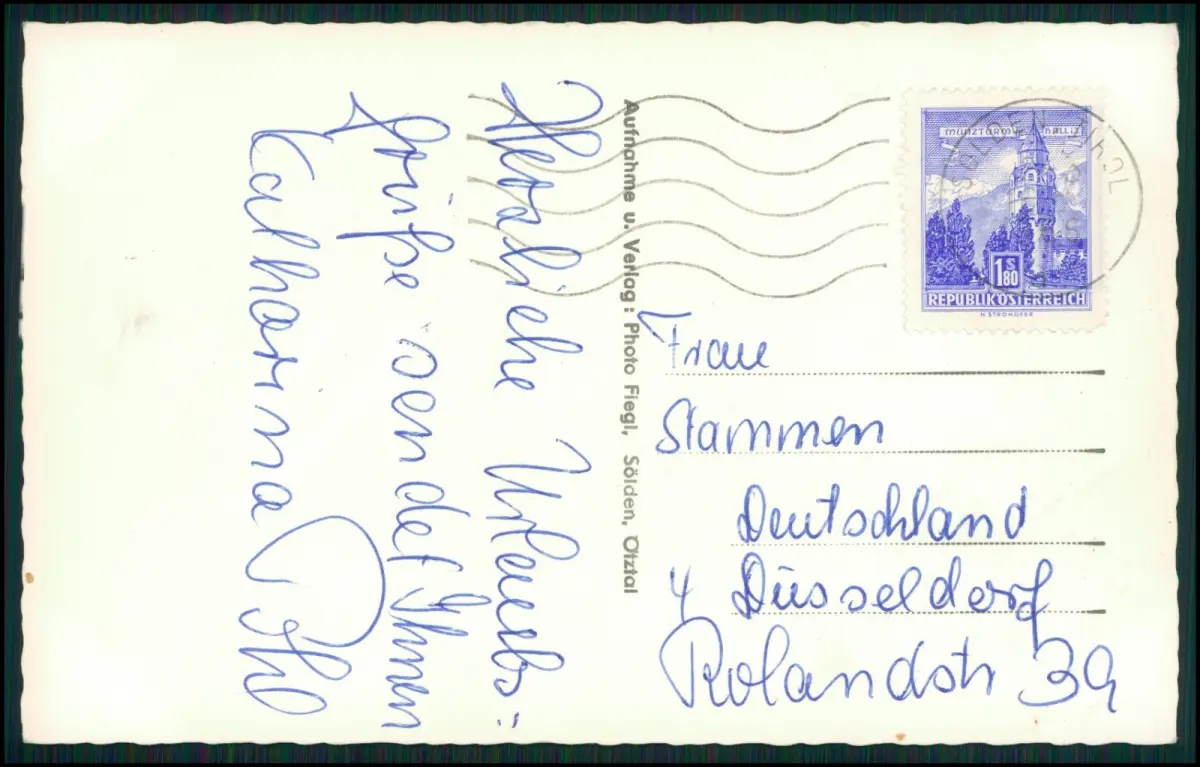 Herzliche Urlaubs=
grüße sendet Ihnen
Aufnahme u. Verlag: Photo Fiegl, Sölden, Ötztal
MÜNZTURM HALL I.T.
1 S 80
REPUBLIK ÖSTERREICH
H. STROHOFER
SÖLDEN
Frau
Stammen
Deutschland
4 Düsseldorf
Rolandstr 39